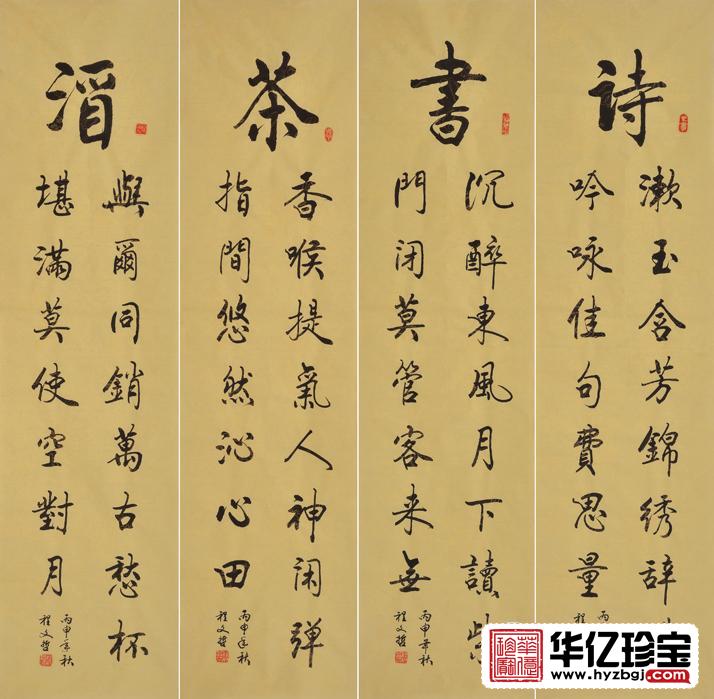 詩
漱玉含芳錦绣辞
吟咏佳句費思量
書
沉醉東風月下讀
門闭莫管客来無
丙申年秋
程文哲
茶
香喉提氣人神闲弹
指間悠然沁心田
丙申年秋
程文哲
酒
與爾同銷萬古愁杯
堪滿莫使空對月
丙申年秋
程文哲
华亿珍宝
www.hyzbgj.com